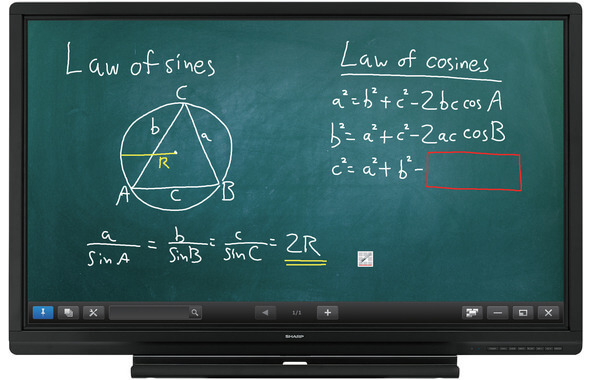 Law of sines
C
b
a
R
A
c
B
a/sin A = b/sin B = c/sin C = 2R
Law of cosines
a² = b² + c² - 2bc cos A
b² = a² + c² - 2ac cos B
c² = a² + b² -
1/1
SHARP